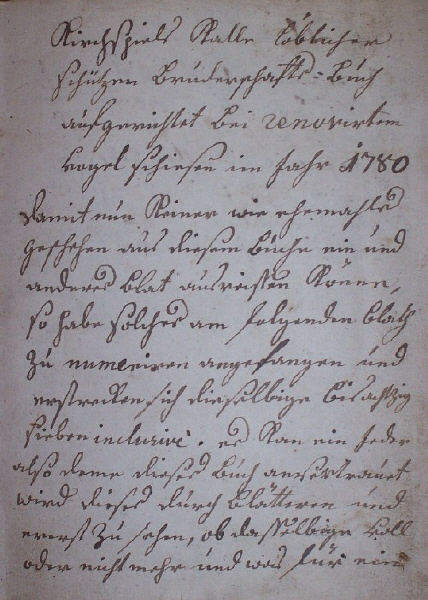 Kirchspiels Kalle löblicher
schützen Bruderschafts=Buch
aufgerichtet bei renovirtem
vogel schiesen im Jahr 1780
damit nun Keiner wie ehemahls
geschehen aus diesem buche ein und
anderes blat ausreissen Könne,
so habe solches am folgenden blath
zu numeriren angefangen und
erstrecken sich dieselbige bis achtzig
sieben inclusive. es Kan ein Jeder
also deme dieses buch anvertrauet
wird dieses durch blätteren und
ererst zu sehen, ob dasselbige voll
oder nicht mehr und was für ein